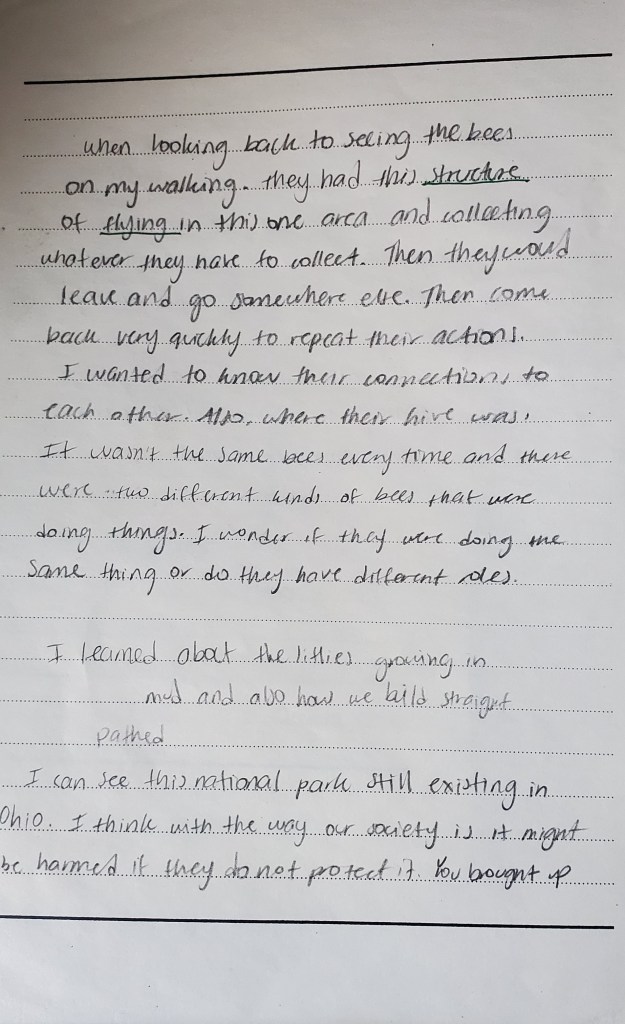 when looking back to seeing the bees
on my walking. they had this structure
of flying in this one area and collecting
whatever they have to collect. Then they would
leave and go somewhere else. Then come
back very quickly to repeat their actions.
I wanted to know their connections to
each other. Also, where their hive was.
It wasn't the same bees every time and there
were two different kinds of bees that were
doing things. I wonder if they were doing the
same thing or do they have different roles.
I learned about the lillies growing in
mud and also how we bild straight
pathed
I can see this national park still existing in
Ohio. I think with the way our society is it might
be harmed if they do not protect it. You bought up